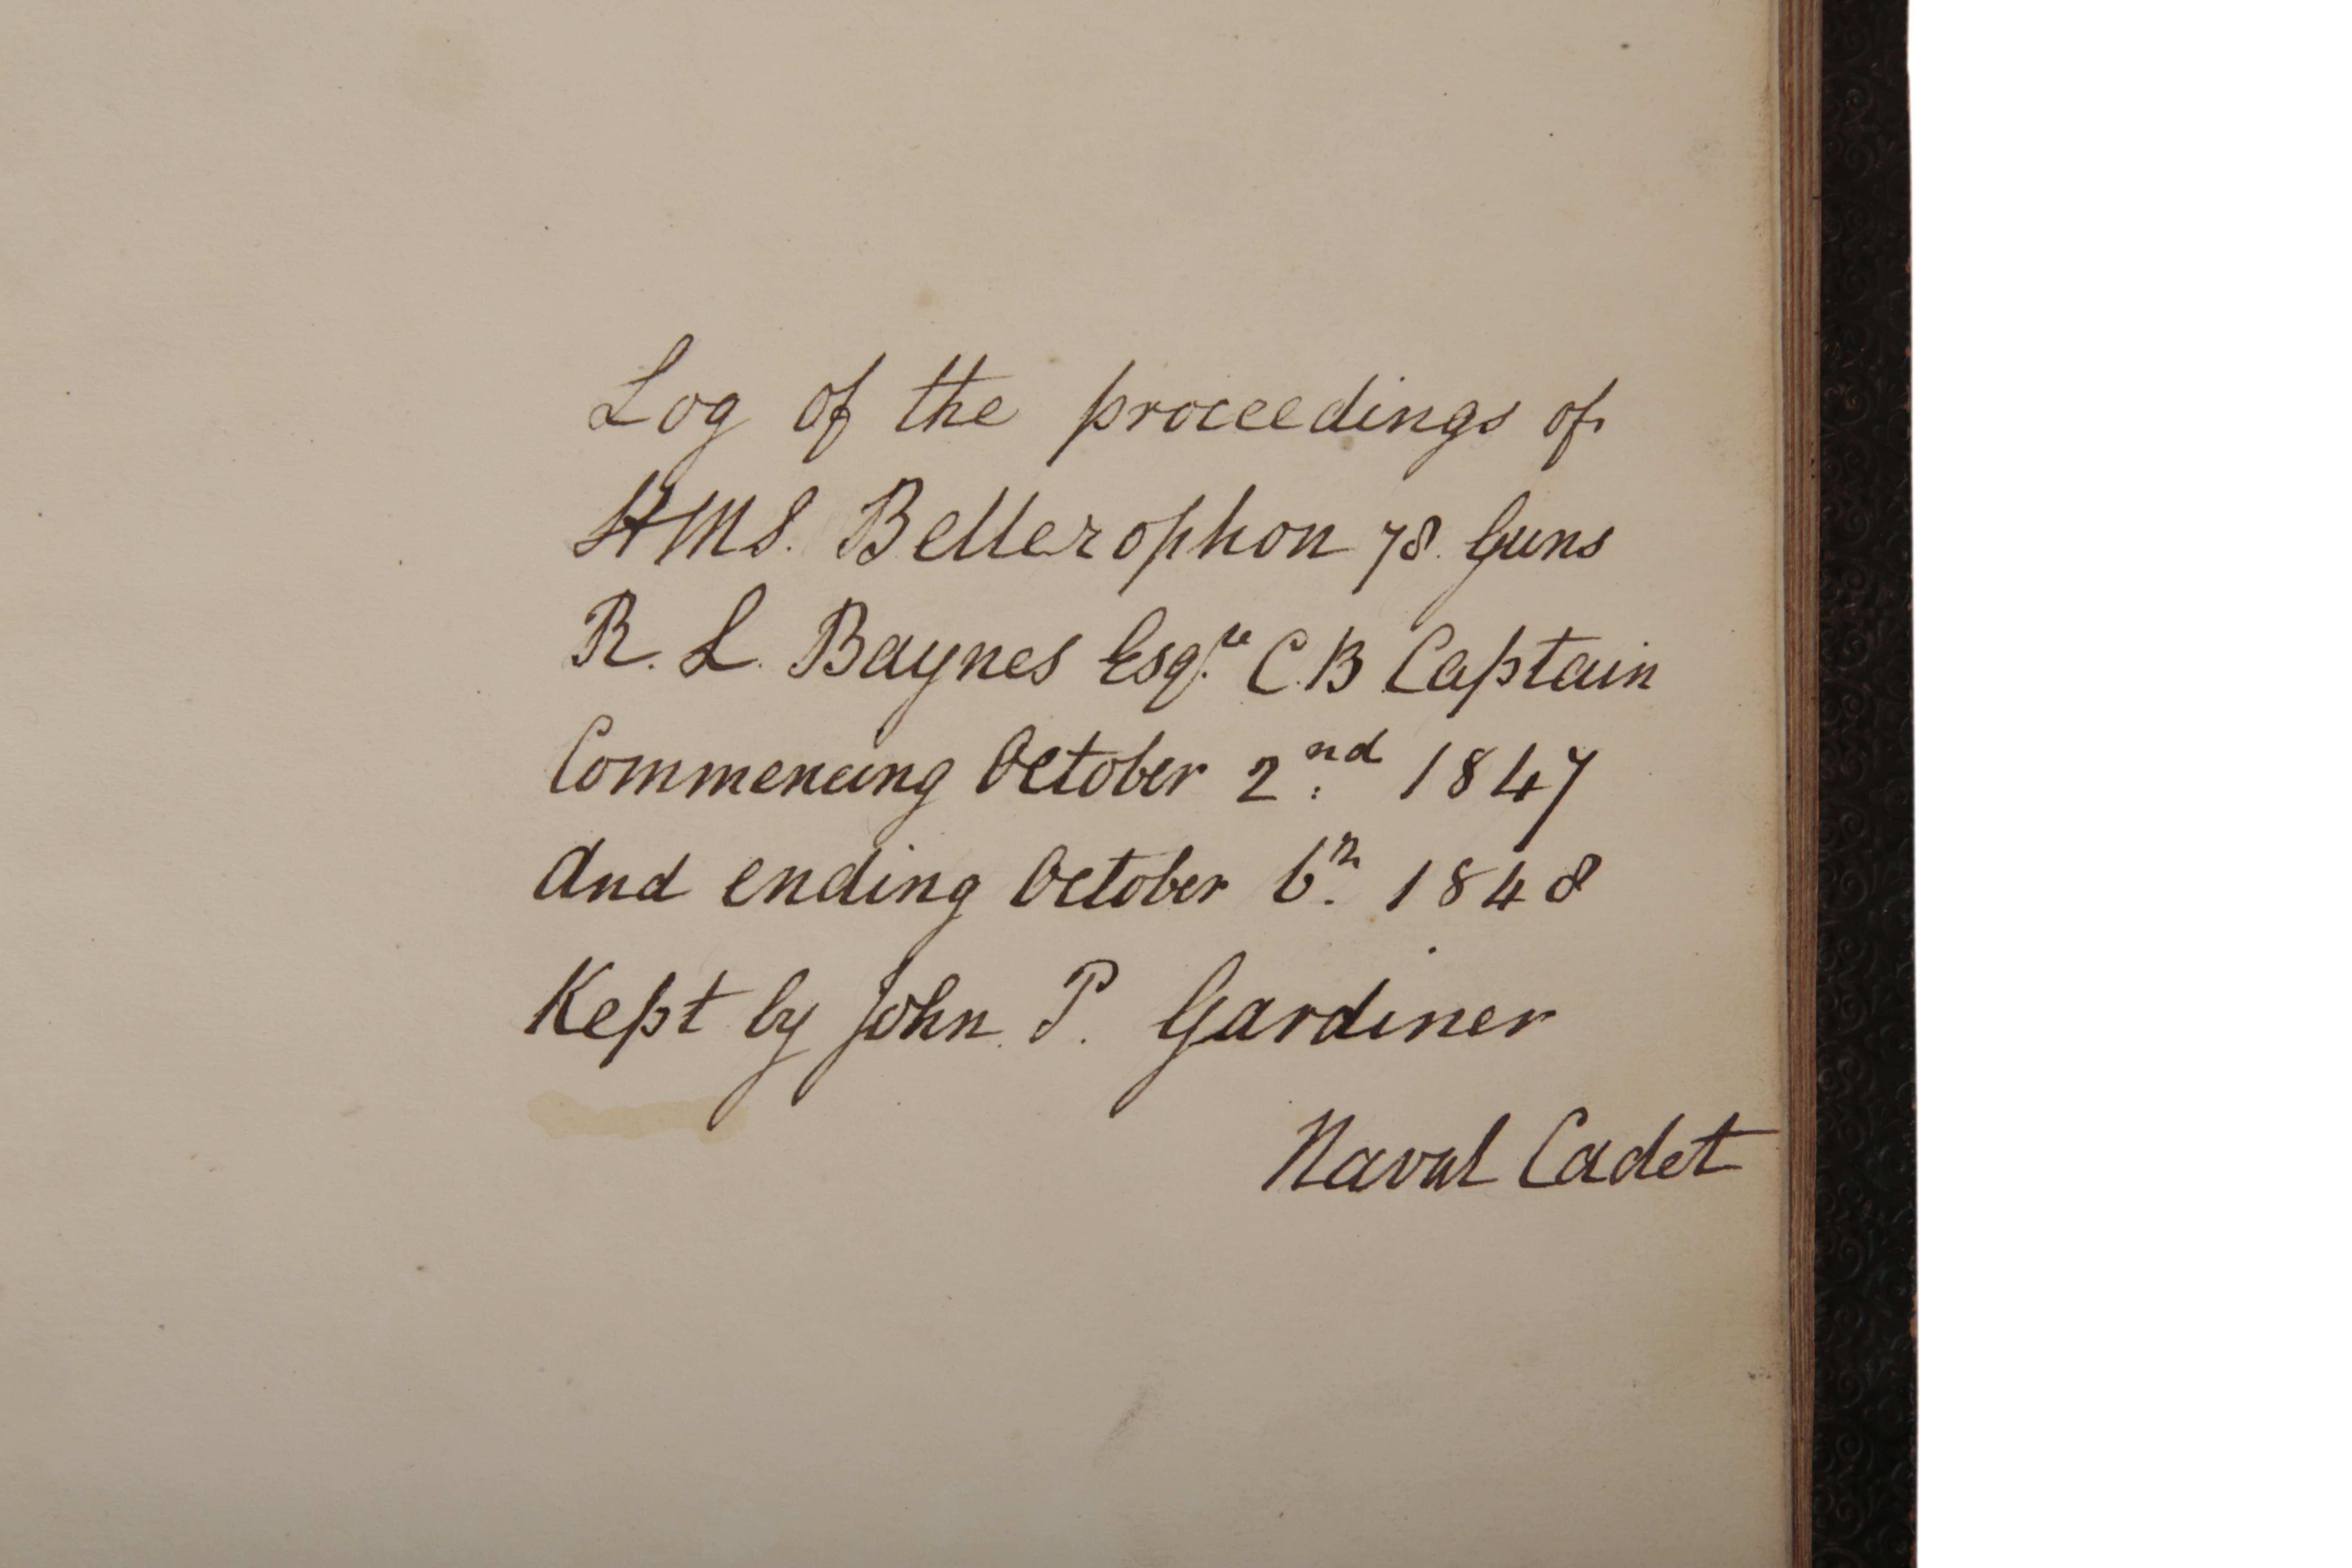 Log of the proceedings of
HMS. Bellerophon 78. Guns
R. L. Baynes Esqre C.B Captain
Commencing October 2nd 1847
And ending October 6th 1848
Kept by John. P. Gardiner
Naval Cadet